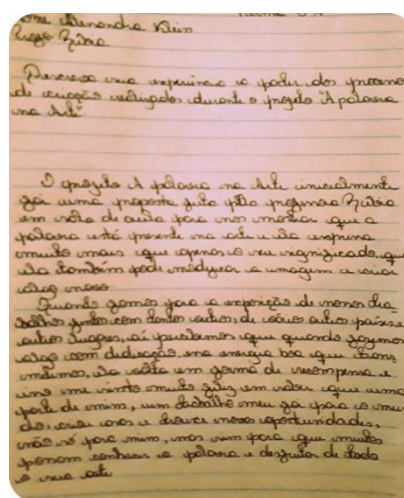 Nome Alexandra Klein
Profª Zúbia
Descreva sua experiência a partir dos processos
de criação realizados durante o projeto "A palavra
na Arte"
O projeto A palavra na Arte inicialmente
foi uma proposta feita pela professora Zúbia
em sala de aula para nos mostrar que a
palavra está presente na arte e ela expressa
muito mais que apenas o seu significado, que
ela também pode modificar a imagem e criar
algo novo.
Quando fomos para a exposição de nossos tra-
balhos junto com tantos outros, de vários outros países e
outros lugares, aí percebemos que quando fazemos
algo com dedicação, essa energia boa que trans-
mitimos, ela volta em forma de recompensa e
me sinto muito feliz em saber que uma
parte de mim, um trabalho meu foi para o mun-
do, criou asas e trouxe novas oportunidades,
não só para mim, mas sim para que muitos
possam conhecer a palavra e desfrutar de toda
a sua arte